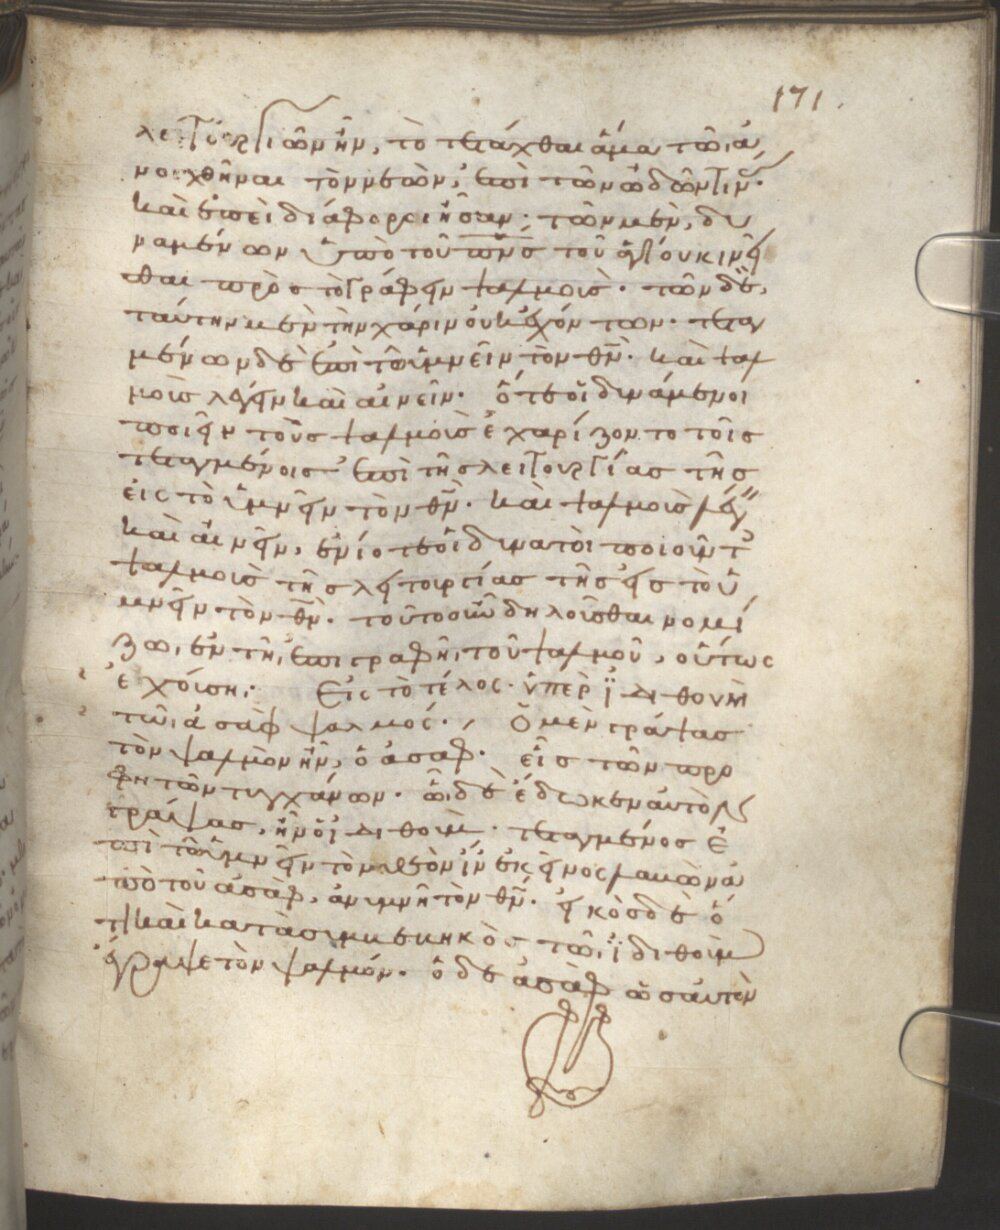 171.
λειτουργιῶν ἦν, τὸ τετάχθαι ἅμα τῶ ἀ
νοιχθῆναι τὸν νεὼν, ἐπὶ τῶν ὠδῶν
καὶ ἐπεὶ διάφοροι ἦσαν· τῶν μὲν, δυ
ναμένων ὑπὸ τοῦ πνς τοῦ ἁγίου κινεῖ
σθαι πρὸς τὸ γράφειν ψαλμοὺς· τῶν δὲ,
ταύτην μὲν τὴν χάριν οὐκ ἐχόντων· τεταγ
μένων δὲ ἐπὶ τῶ ὑμνεῖν τὸν θν· καὶ ψαλ
μοὺς λέγειν καὶ αἰνεῖν· ὅτε οἱ δυνάμενοι
ποιεῖν τοὺς ψαλμοὺς ἐχαρίζοντο τοῖς
τεταγμένοις ἐπὶ τῆς λειτουργίας τῆς
εἰς τὸ ὑμνεῖν τὸν θν· καὶ ψαλμοὺς λέγ
καὶ αἰνεῖν, ἐνίοτε οἱ δυνατοὶ ποιοῦντ
ψαλμοὺς τῆς λειτουργίας τῆς εἰς τὸ ὑ
μνεῖν τὸν θν· τοῦτο οὖν δηλοῦσθαι νομί
ζω, ἐν τῆ ἐπιγραφῆ τοῦ ψαλμοῦ, οὕτως
ἐχούση· Εἰς τὸ τέλος· ὑπὲρ ϊδιθοὺμ
τῶ ἀσὰφ ψαλμός· Ὁ μὲν γράψας
τὸν ψαλμὸν ἦν, ὁ ἀσαφ· εἷς τῶν προ
φητῶν τυγχάνων· ᾧ δὲ ἔδωκεν αὐτὸν
γράψας, ἦν ὁ ϊδιθοὺμ· τεταγμένος ἐ
πὶ τῶ ὑμνεῖν τὸν θεὸν ἵν ἐκεῖνος λαβὼν ἀ
πὸ τοῦ ἀσὰφ, ἀνυμνῆ τὸν θν· εἰκὸς δὲ ὅ
τι καὶ κατὰ συμβεβηκὸς τῶ ϊδιθοὺμ
ἔγραψε τὸν ψαλμόν· ὁ δὲ ἀσὰφ ὡσαύτην